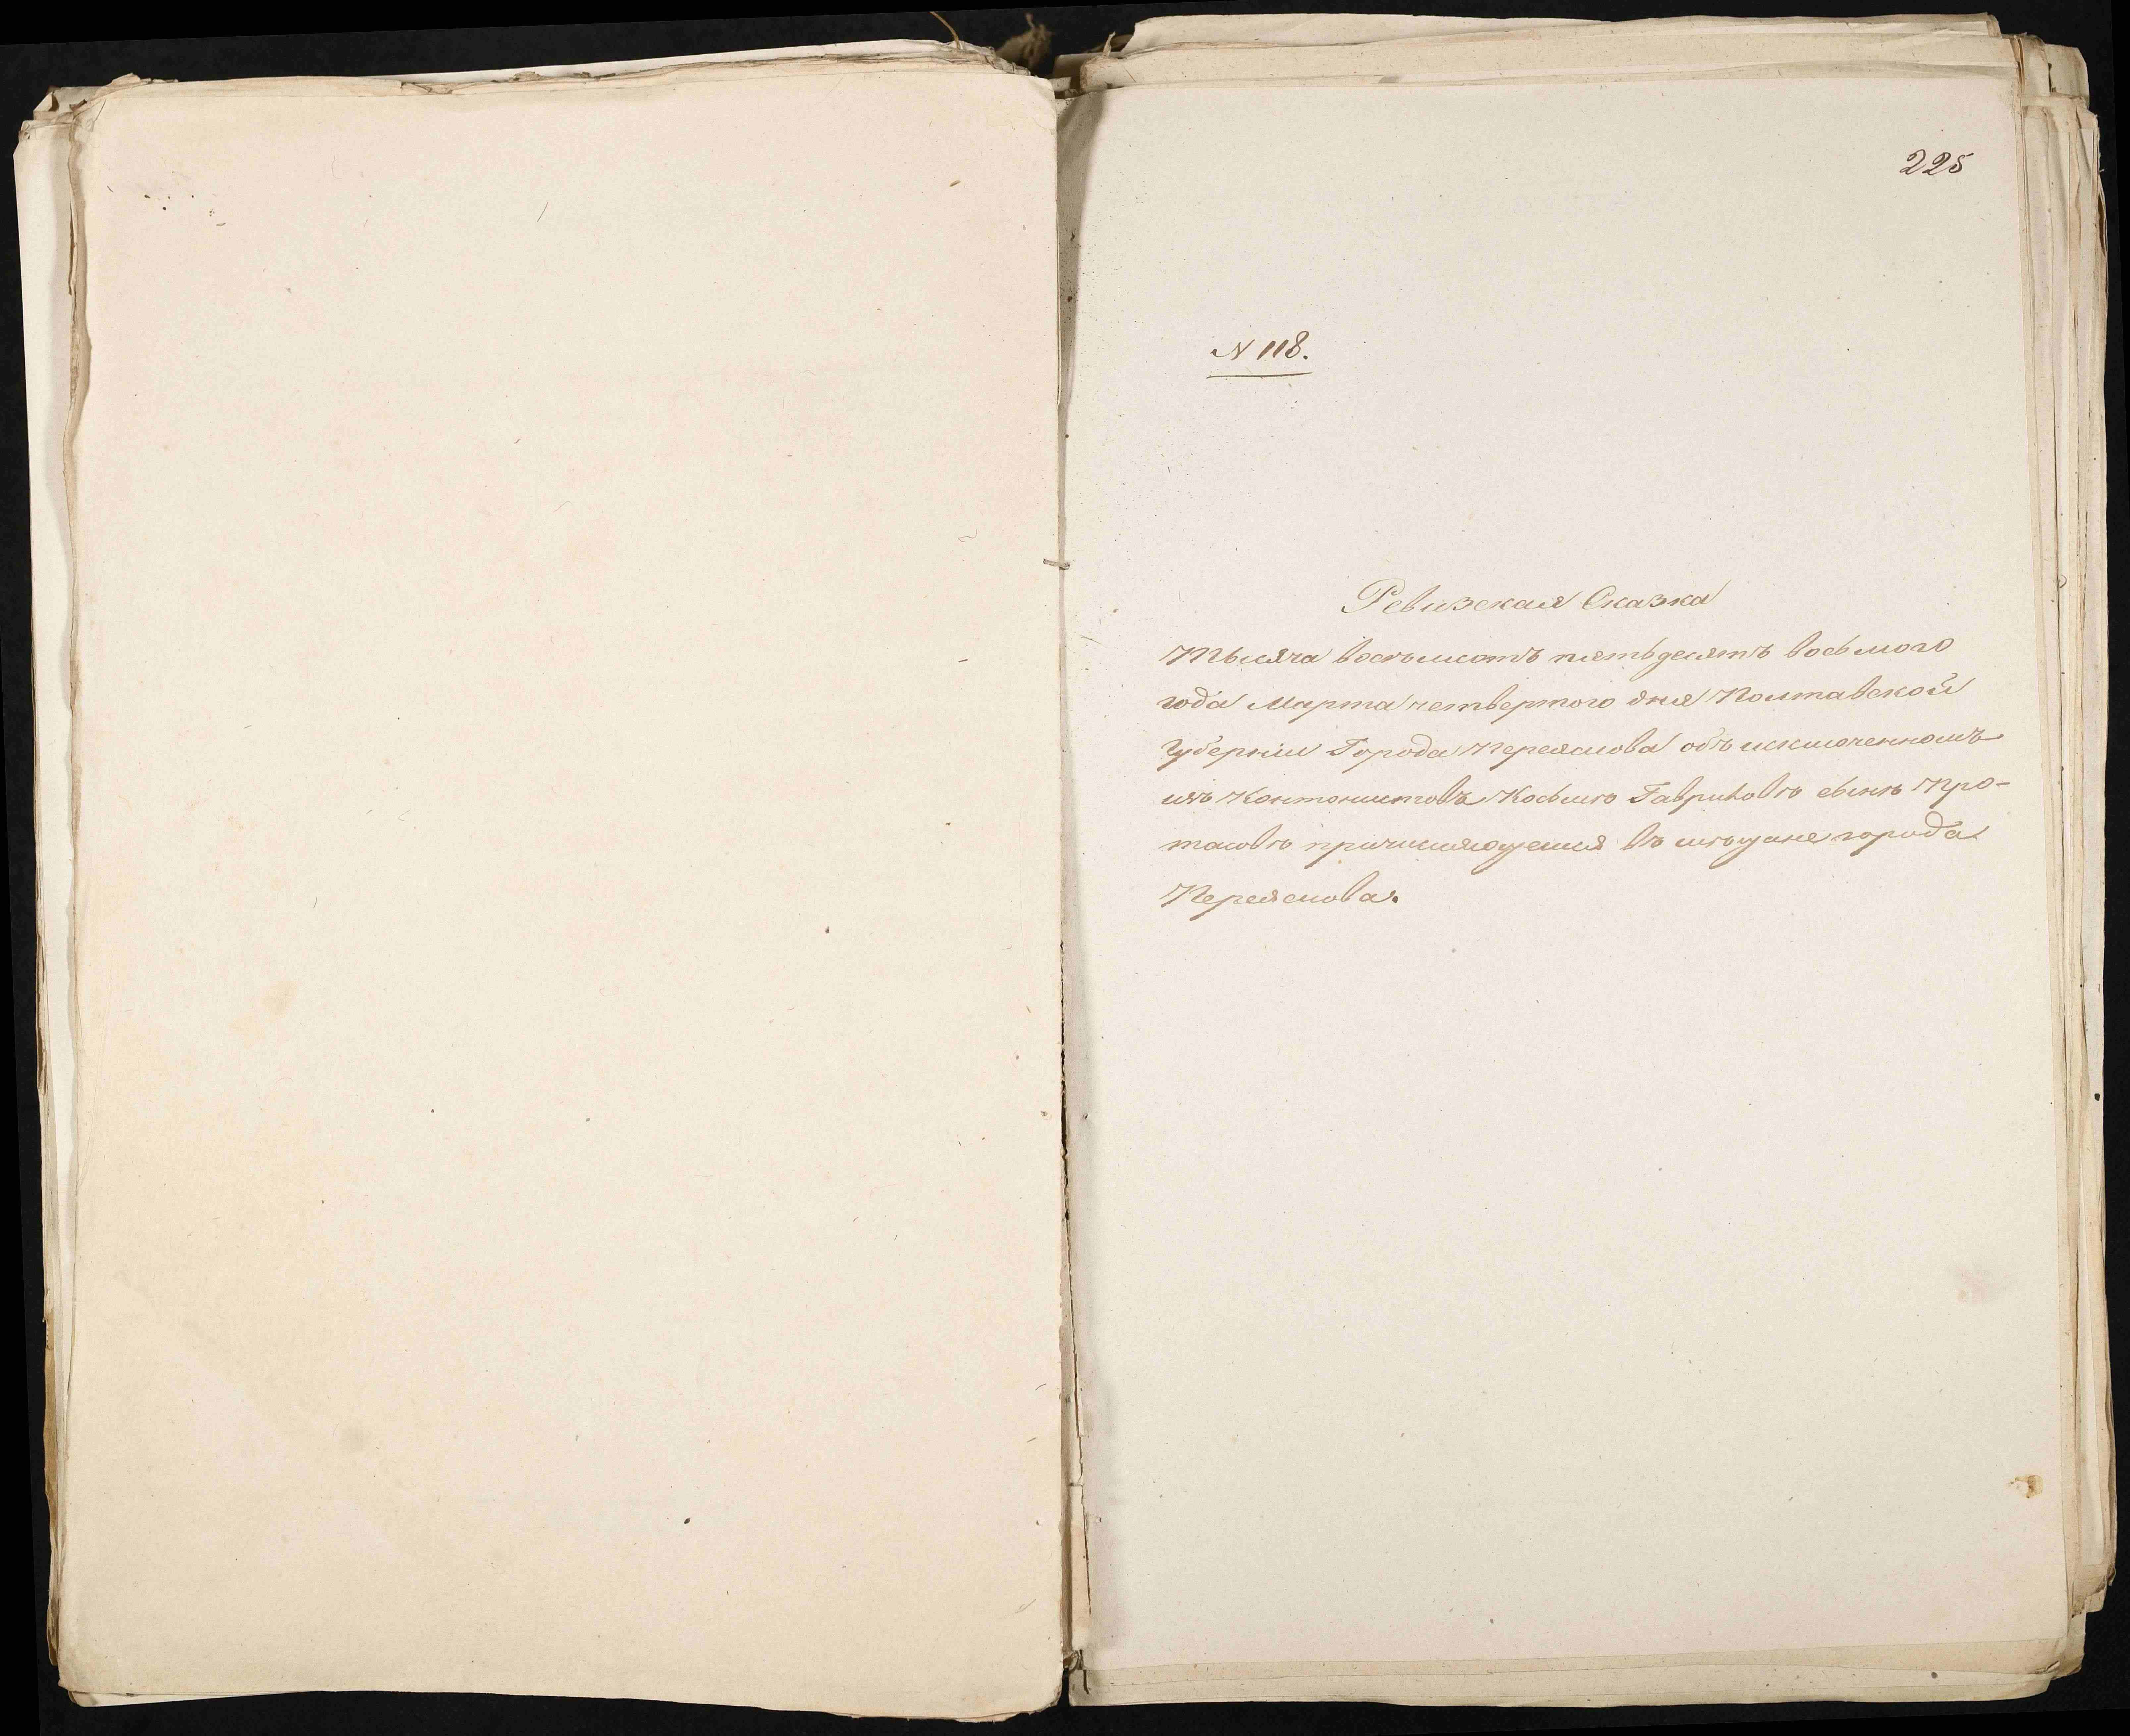 225
N 118.
Ревизская Сказка
Тысяча восемьсотъ пятьдесятъ восьмого
года Марта четвертого дня Полтавской
Губерніи Города Переяслова объ исключенномъ
изъ Кантонистовъ Косьмѣ Гавриловѣ сынѣ Про-
тасовѣ причисляющемся въ мѣщане города
Переяслова.